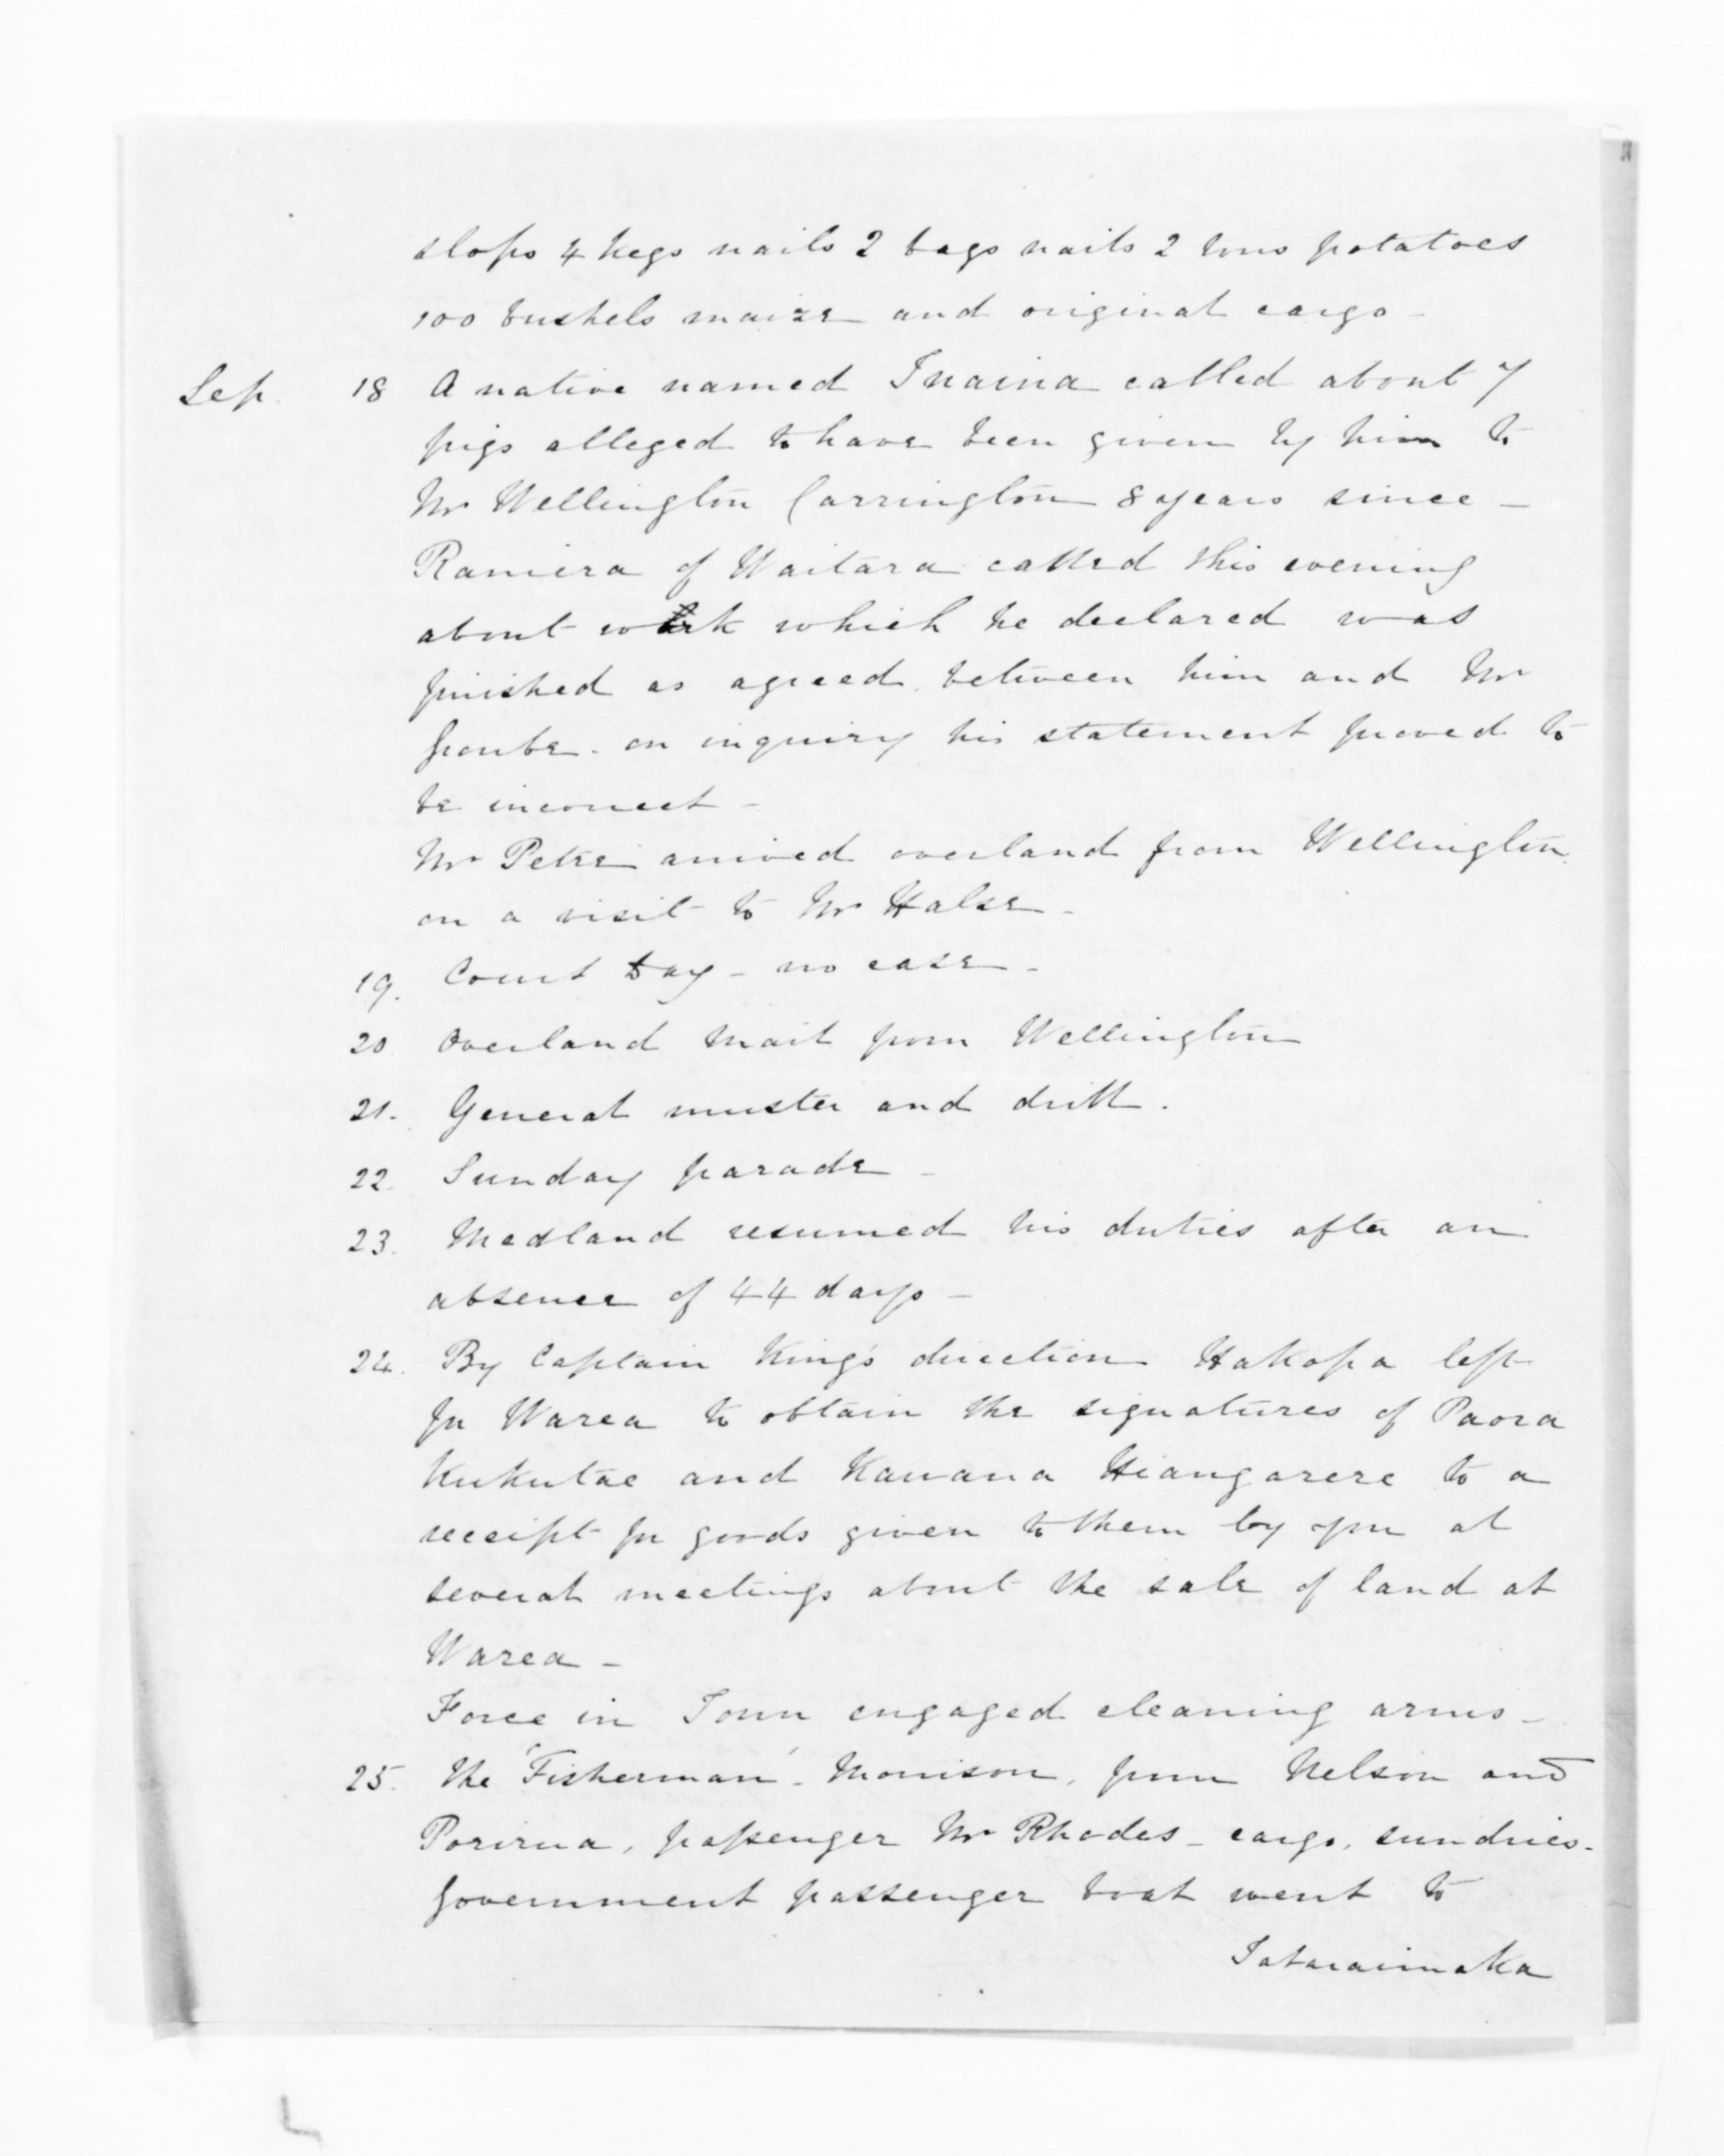 slops 4 kegs nails 2 bags nails 2 tons potatoes
100 bushels maize and original cargo -
Sep. 18 A native named Inaina called about 7
pigs alleged to have been given by him to
Mr Wellington Carrington 8 years since -
Ramera of Waitara called this evening
about work which he declared was
finished as agreed between him and Mr
on inquiry his statement proved to
be incorrect -
Mr Petre arrived overland from Wellington
on a visit to Mr Halse -
19. Court day - no case -
20. Overland Mail from Wellington
21. General muster and drill.
22. Sunday parade -
23. Medland resumed his duties after an
absence of 44 days -
24. By Captain King's direction Hakopa left
for Warea to obtain the signatures of Paora
Kukutae and Kawana Hiangarere to a
receipt for goods given to them by you at
several meetings about the sale of land at
Warea -
Force in Town engaged cleaning arms -
25. The 'Fisherman' - Morrison, from Nelson and
Porirua, passenger Mr Rhodes - cargo, sundries -
Government passenger boat went to
Tataraimaka